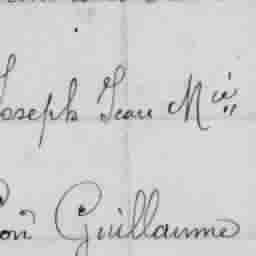 Joseph Jean Mie
on Guillaume